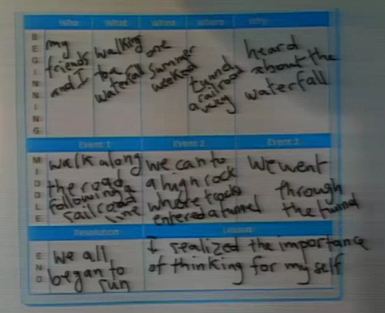 Who What When Where Why
BEGINNING
my friends and I
walking to a waterfall
one summer weekend
tunnel a railroad way
heard about the waterfall
Event 1 Event 2 Event 3
MIDDLE
walk along the road following a railroad line
we cam to a high rock where tracks entered a tunnel
We went through the tunnel
Resolution Lesson
END
We all began to run
I realized the importance of thinking for my self